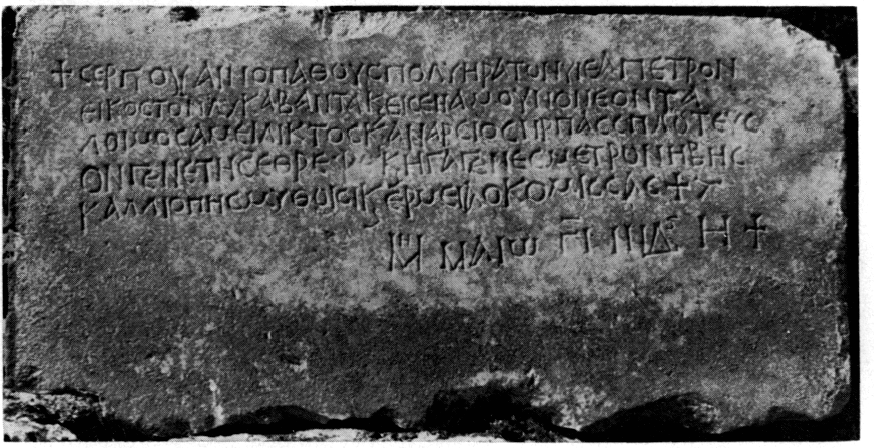 ✝ ΣΕΡΓΙΟΥΑΙΝΟΠΑΘΟΥΣΠΟΛΥΗΡΑΤΟΝΥΙΕΑΠΕΤΡΟΝ
ΕΙΚΟΣΤΟΝΛΥΚΑΒΑΝΤΑΚΕΙΣΕΠΑΜΟΥΝΟΝΕΟΝΤΑ
ΛΟΙΜΟΣΑΜΕΙΛΙΚΤΟΣΚΑΝΑΡΣΙΟΣΗΡΠΑΣΕΠΛΩΤΕΥΣ
ΟΝΓΕΝΕΤΗΣΕΘΡΕΨΕΚΗΓΑΓΕΝΕΣΜΕΤΡΟΝΗΒΗΣ
ΚΑΛΛΙΟΠΗΣΜΥΘΟΙΣΙΚΕΡΜΕΙΑΟΚΟΜΙΣΣΑΣ ✝
ΜΗ ΜΑΙΩ ΓΙ ΙΝΔ Η ✝